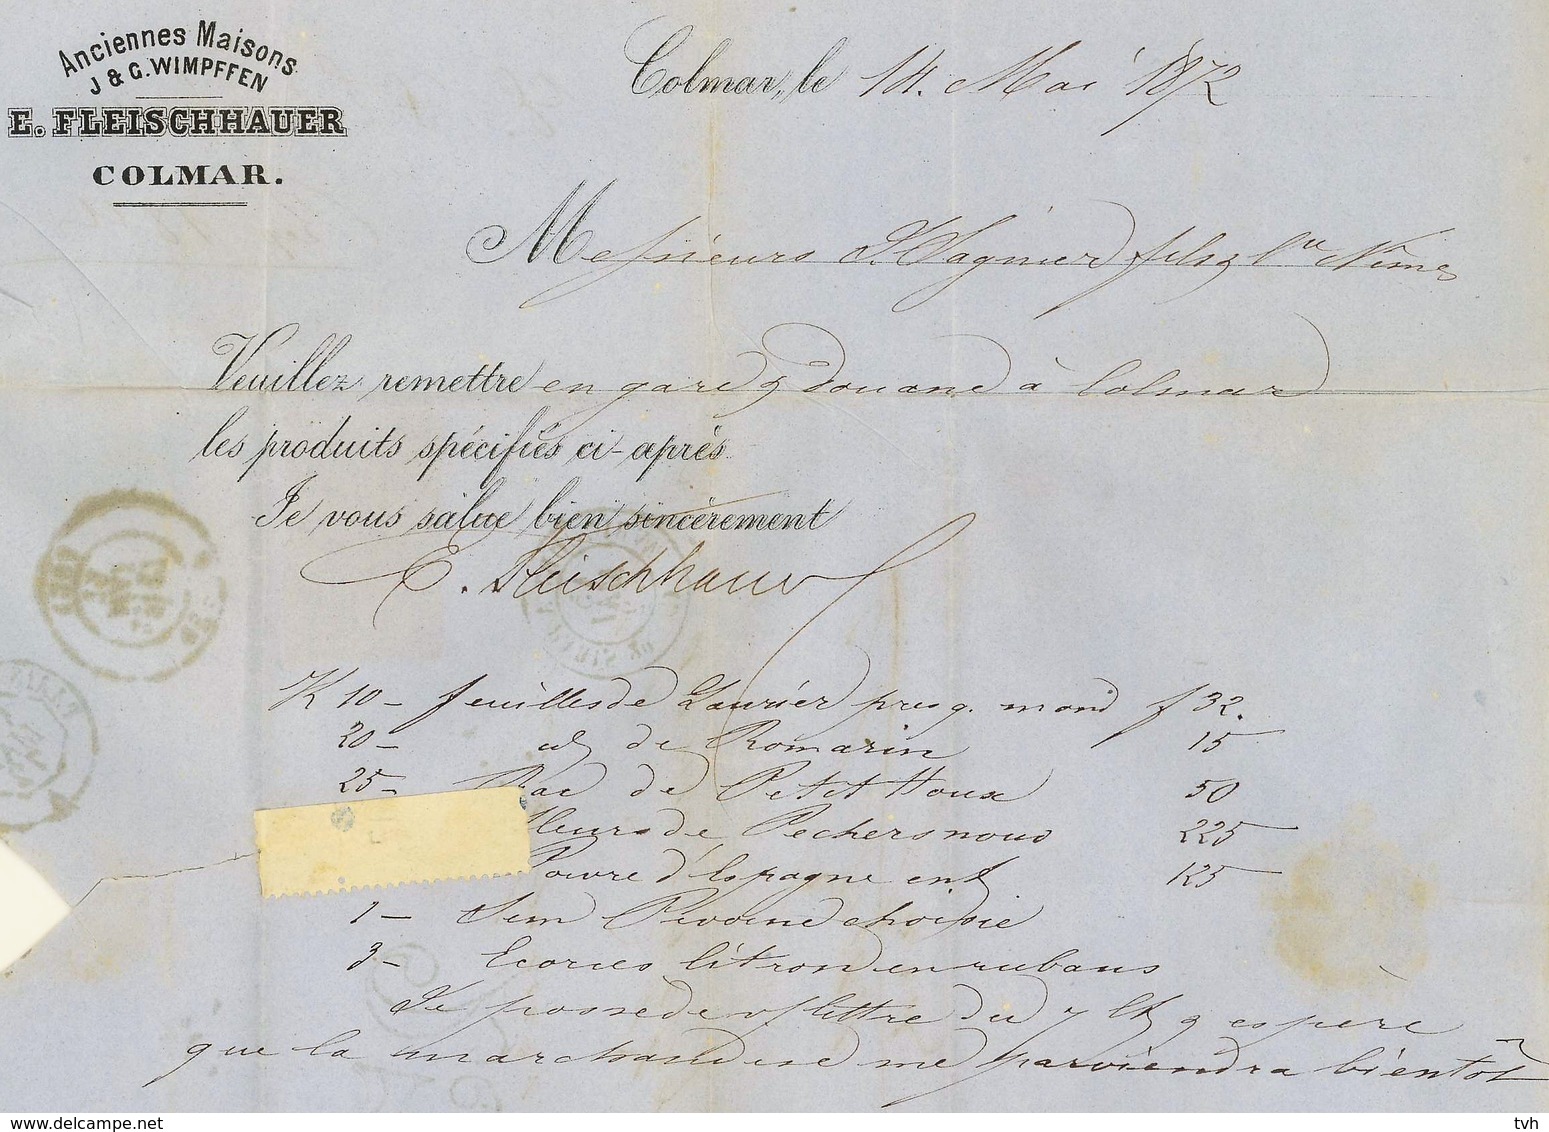 Anciennes Maisons
J & G. WIMPFFEN
E. FLEISCHHAUER
COLMAR.
Colmar, le 14. Mai 1872
Messieurs Wagnier fils & Cie Nîmes
Veuillez remettre en gare & douane à Colmar
les produits spécifiés ci-après
Je vous salue bien sincèrement
E. Fleischhauer
K 10 – feuilles de Laurier presq. mond f 32.
20 – de Romarin 15
25 – Rac de Petit Houx 50
fleurs de Pechers nouv 225
Poivre d'Espagne ent 125
1 – Sem Pivoine choisie
3 – Ecorces Citron en rubans
Je possede v/ lettre du 7 & espere
que la marchandise me parviendra bientôt
tvh